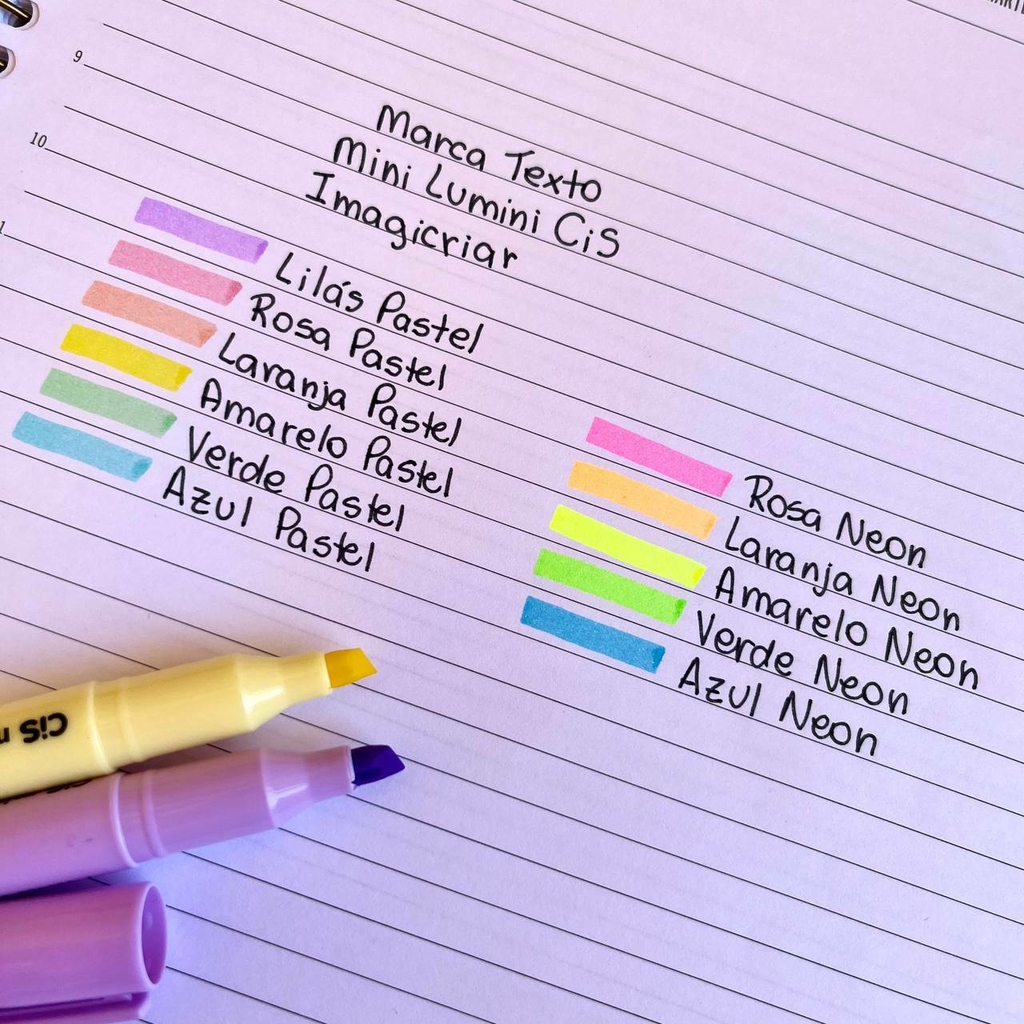 9
10
Marca Texto
Mini Lumini Cis
Imagicriar
Lilás Pastel
Rosa Pastel
Laranja Pastel
Amarelo Pastel
Verde Pastel
Azul Pastel
Rosa Neon
Laranja Neon
Amarelo Neon
Verde Neon
Azul Neon
cis